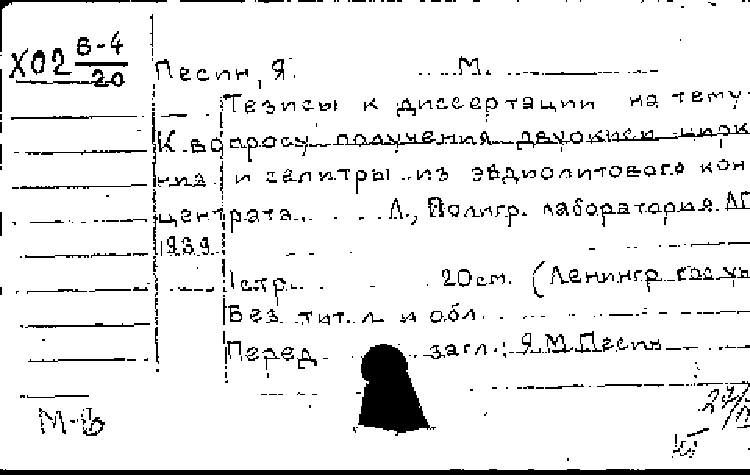 Х02 6-4/20
Песин, Я. М.
Тезисы к диссертации на тему
К вопросу получения двуокиси цирко
ния и селитры из эвдиолитового кон
центрата. Л., Полигр. лаборатория
1939
1 стр. 20 см. (Ленингр. гос. ун
Без тит. л. и обл.
Перед загл.: Я.М. Песин
М-В